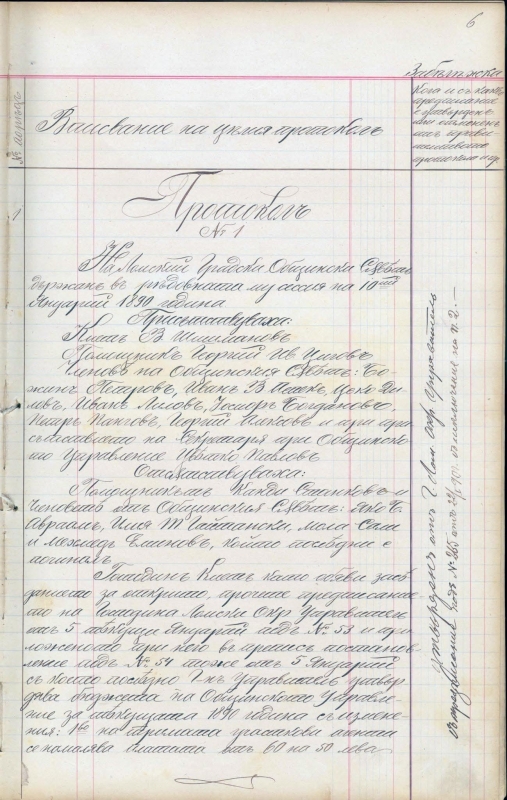 6
Забѣлѣжки
Кога и съ какво
предписание
е утвърденъ
или отмененъ
отъ
протокола и пр.
Вписвание на целия протоколъ
1
Протоколъ
№ 1
На Ломский Градски Общински Съвѣтъ
държанъ въ редовната му сессия на 10ий
Януарий 1890 година
Присъствуваха:
Кметъ В Шишмановъ
Помощникъ Георгий Ив Цѣновъ
Членове на Общинския Съвѣтъ: Бо-
жинъ Петровъ, Иванъ В Цеко Ди-
ловъ, Иванъ Лиловъ, Тодоръ Богдановъ,
Петъръ Панговъ, Георгий и при при-
сѫтствието на Секретаря при Общинско-
то Управление Цвѣтко Павловъ
Отсѫтствуваха:
Помощникътъ Канди Станковъ и
Членовете отъ Общинския Съвѣтъ: Яко Б.
Авраамъ, Илия Т мола Сали
и Мехмедъ Еминовъ, който последни е
починалъ
Господинъ Кметъ като обяви засѣ-
данието за открито, прочете предписание-
то на Господина Ломски Окр. Управителъ
отъ 5 текущи Януарий подъ № 53 и при-
ложеното при него въ преписъ постанов-
ление подъ № 54 тоже отъ 5 Януарий
съ което последно Г-нъ Управителъ утвър-
дава бюджета на Общинското Управле-
ние за текущата 1890 година съ измене-
ния: 1во на тримата граждански
се намалява платата отъ 60 на 50 лева
Утвърденъ отъ Г. Лом. окр. управитель
съ предписание подъ № 265 отъ съ изключение на п. 2. —